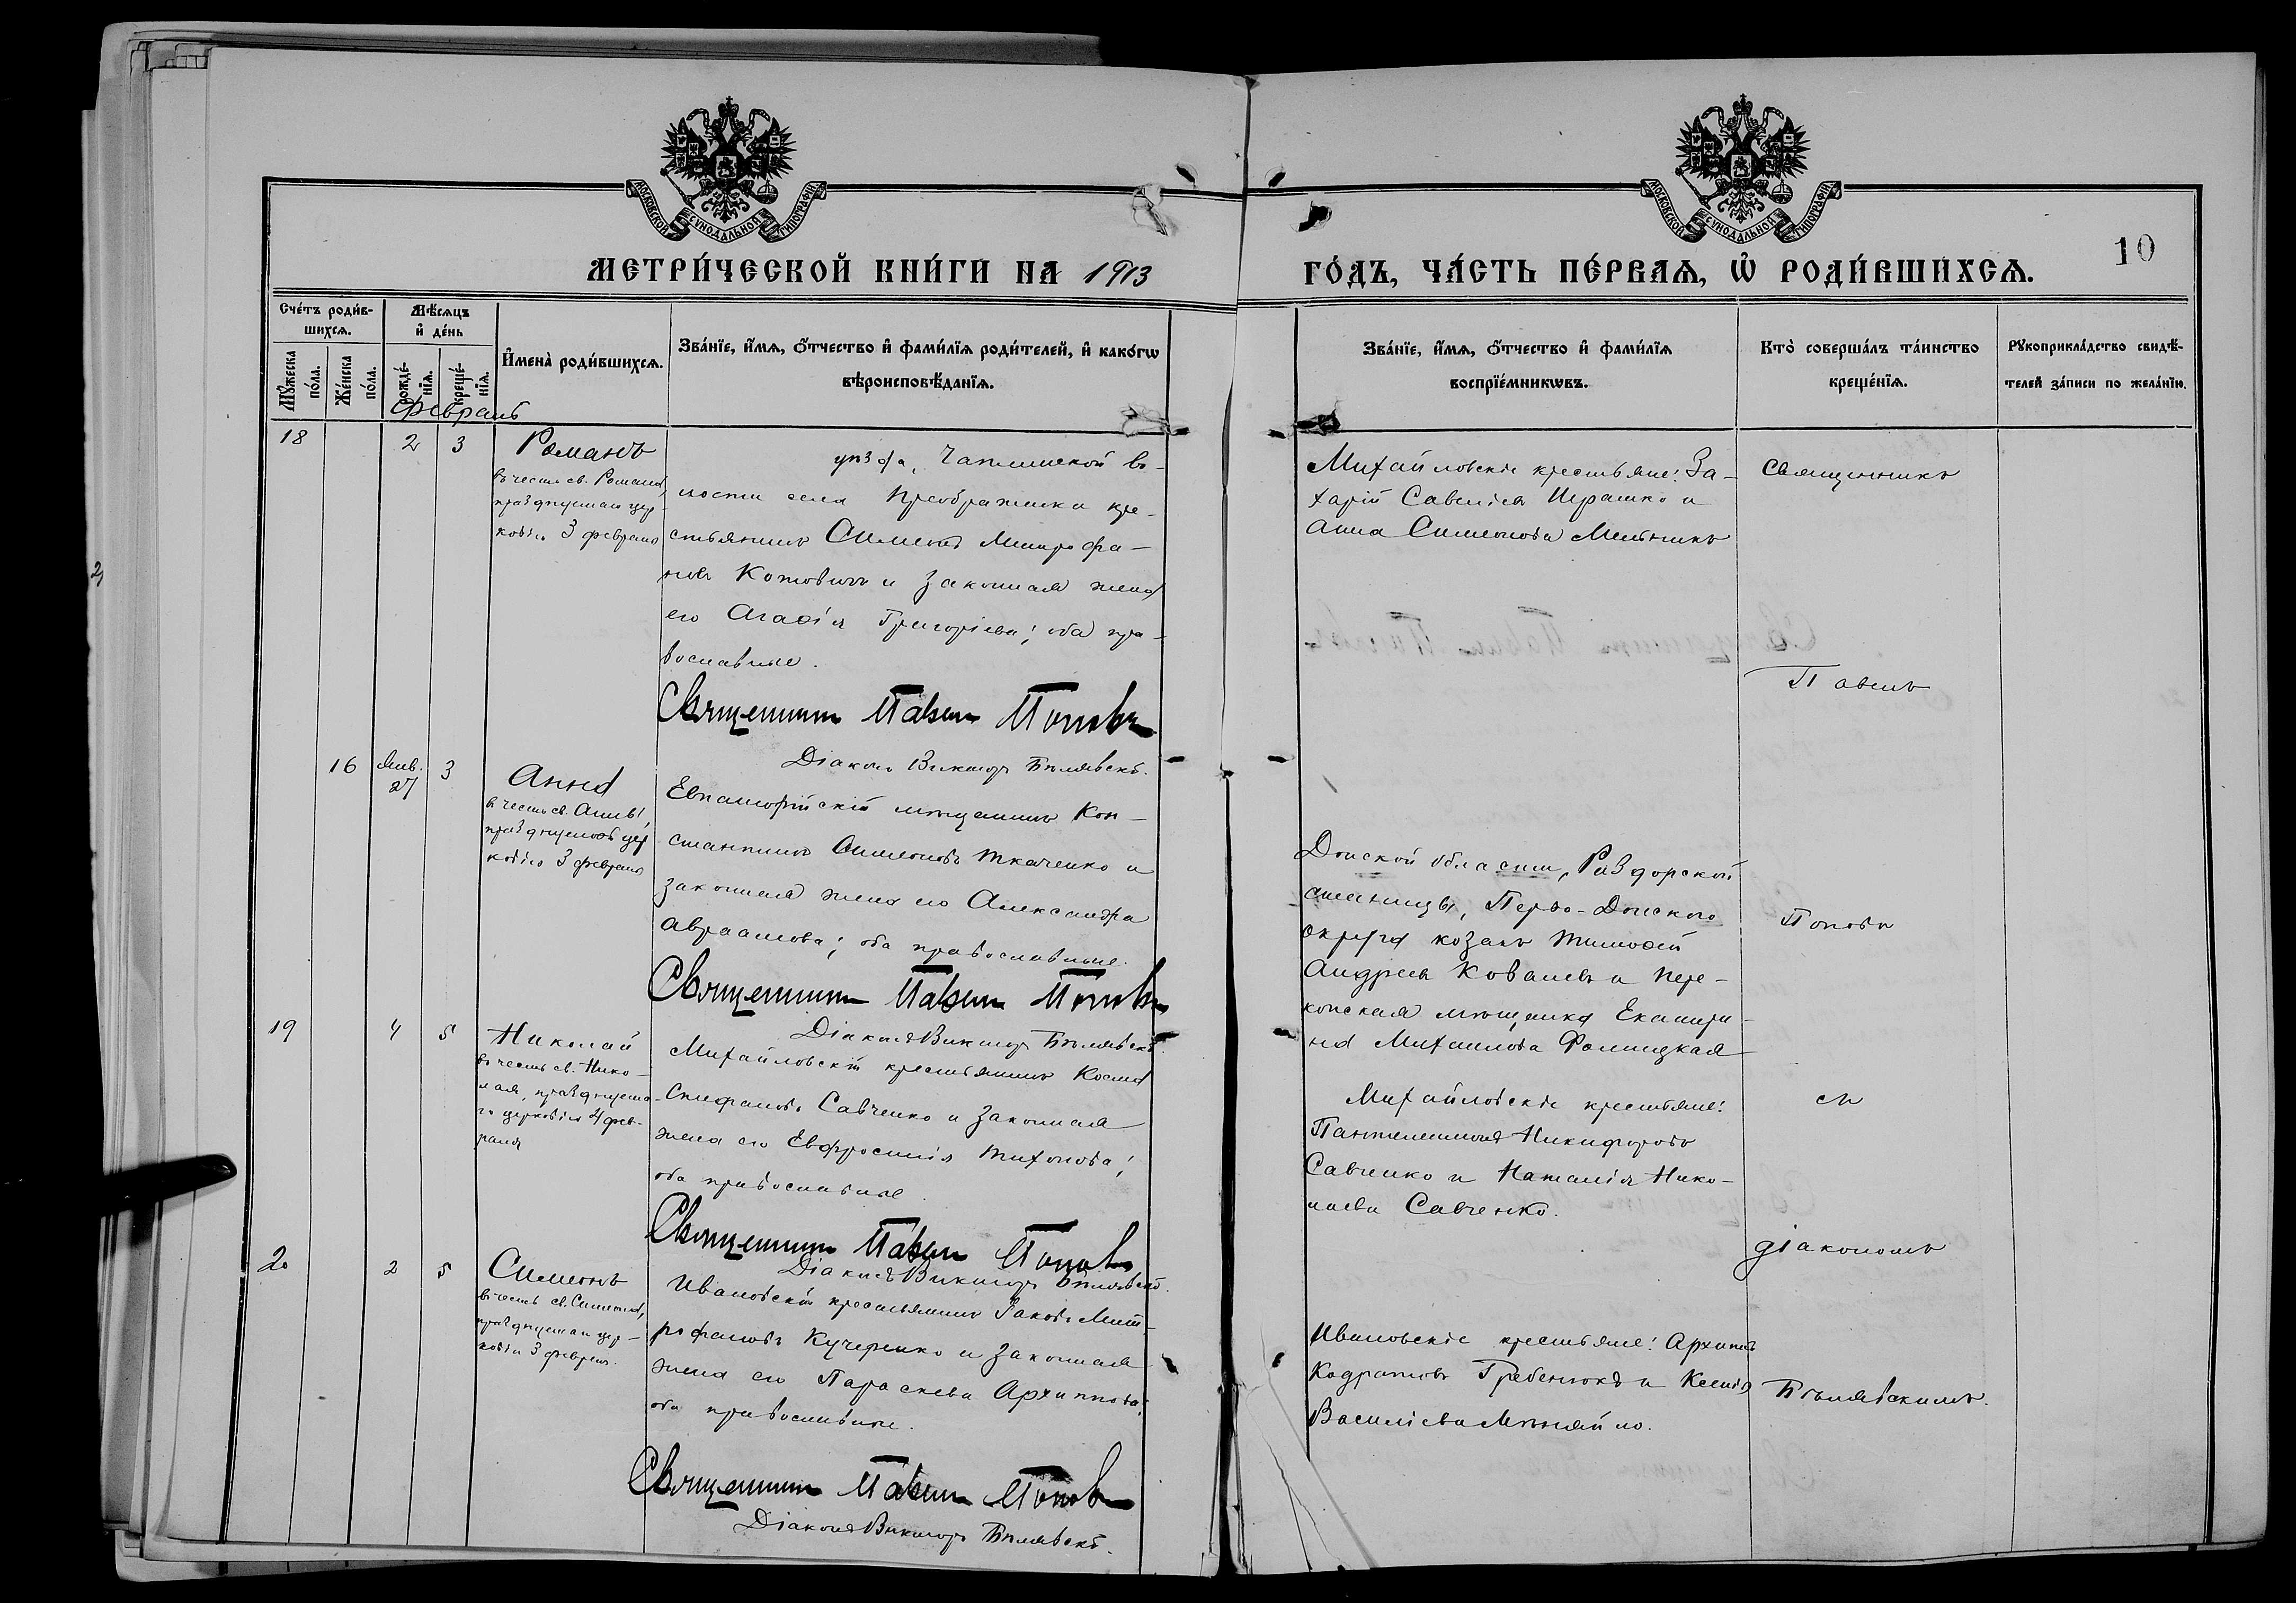 МОСКОВСКОЙ СѴНОДАЛЬНОЙ ТИПОГРАФІИ
МОСКОВСКОЙ СѴНОДАЛЬНОЙ ТИПОГРАФІИ
МЕТРИ́ЧЕСКОЙ КНИ́ГИ НА 1913
ГО́ДЪ, ЧА́СТЬ ПЕ́РВАѦ, Ѽ РОДИ́ВШИХСѦ.
10
Сче́тъ роди́в-
шихсѧ.
Мꙋ́жеска по́ла.
Же́нска по́ла.
Мѣ́сѧцъ
и҆ де́нь
рожде́-нїѧ.
креще́-нїѧ.
И҆мена̀ роди́вшихсѧ.
Зва́нїе, и҆́мѧ, ѻ҆́тчество и҆ фами́лїѧ роди́телей, и҆ како́гѡ
вѣроисповѣ́данїѧ.
Зва́нїе, и҆́мѧ, ѻ҆́тчество и҆ фами́лїѧ
воспрїе́мникѡвъ.
Кто̀ соверша́лъ та́инство
креще́нїѧ.
Рꙋкоприкла́дство свидѣ́-
телей за́писи по жела́нїю.
Февраль
18
2
3
Романъ
въ честь св. Романа,
празднуемаго цер-
ковію 3 февраля
уѣзда, Чаплинской во-
лости села Преображенки кре-
стьянинъ Симеонъ Митрофа-
новъ Котовичъ и законная жена
его Агаѳія Григоріева; оба пра-
вославные.
Священникъ Павелъ Поповъ
Діаконъ Викторъ Бѣлявскій.
Михайловскіе крестьяне: За-
харій Савеліевъ Играшко и
Анна Симеонова Мельникъ
Священникъ
Павелъ
16
Янв.
27
3
Анна
въ честь св. Анны,
празднуемой цер
ковію 3 февраля
Евпаторійскій мѣщанинъ Кон-
стантинъ Симеоновъ Ткаченко и
законная жена его Александра
Авраамова; оба православные.
Священникъ Павелъ Поповъ
Діаконъ Викторъ Бѣлявскій.
Донской области, Раздорской
станицы, Перво-Донского
округа козакъ Тимоѳей
Андреевъ Ковалевъ и Пере-
копская мѣщанка Екатери-
на Михаилова Фолицкая
Поповъ
19
4
5
Николай
въ честь св. Нико-
лая, празднуема-
го церковію 4 фев-
раля
Михайловскій крестьянинъ Косма
Епифановъ Савченко и законная
жена его Евфросинія Тихонова;
оба православные.
Священникъ Павелъ Поповъ
Діаконъ Викторъ Бѣлявскій.
Михайловскіе крестьяне:
Пантелеимонъ Никифоровъ
Савченко и Наталія Нико-
лаева Савченко.
съ
діакономъ
20
2
5
Симеонъ
въ честь св. Симеона,
празднуемаго цер-
ковію 3 февраля.
Ивановскій крестьянинъ Іаковъ Мит-
рофановъ Кучеренко и законная
жена его Параскева Архиппова;
оба православные.
Священникъ Павелъ Поповъ
Діаконъ Викторъ Бѣлявскій.
Ивановскіе крестьяне: Архипъ
Кодратовъ Гребенюкъ и Ксенія
Василіева Мѣняйло.
Бѣлявскимъ.